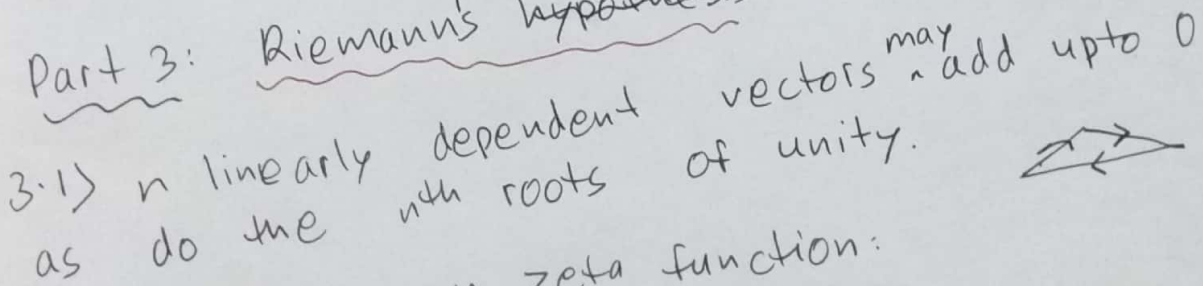 Part 3: Riemann's
3.1) n linearly dependent vectors may add upto 0
as do the nth roots of unity.
zeta function: